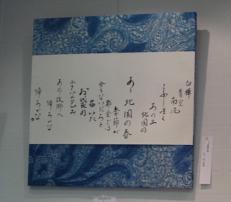 白樺
青空
南風
こぶし咲く
あの丘
北国の
あゝ北国の春
季節が
都会では
わからないだろと
届いた
お袋の
小さな包み
あの故郷へ
帰ろかな
帰ろかな